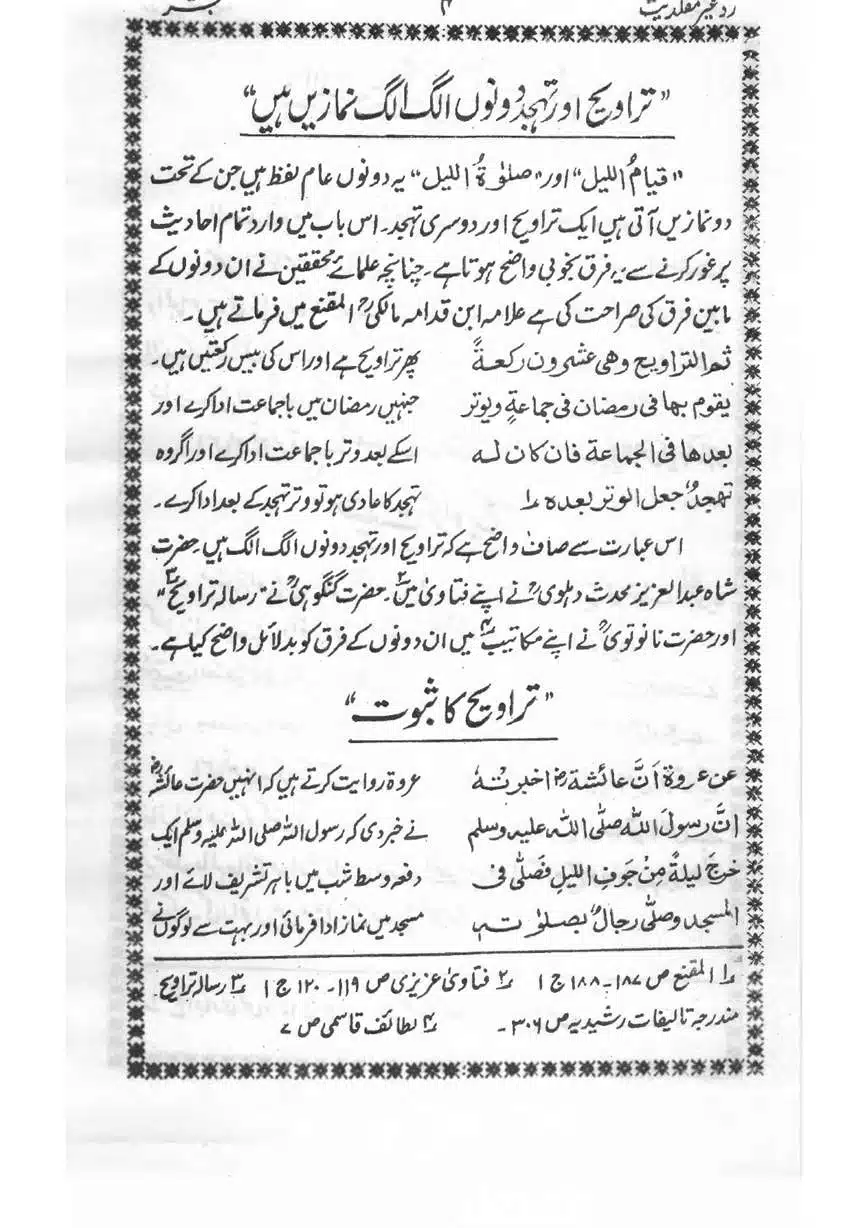 رد غیر مقلدیت ۴
”تراویح اور تہجد دونوں الگ الگ نمازیں ہیں“
”قیامُ اللیل“ اور ”صلوٰۃُ اللیل“ یہ دونوں عام لفظ ہیں جن کے تحت
دو نمازیں آتی ہیں ایک تراویح اور دوسری تہجد۔ اس باب میں وارد تمام احادیث
پر غور کرنے سے یہ فرق بخوبی واضح ہوتا ہے۔ چنانچہ علمائے محققین نے ان دونوں کے
مابین فرق کی صراحت کی ہے علامہ ابن قدامہ مالکیؒ المقنع میں فرماتے ہیں ۔
ثم التراویح وھی عشرون رکعۃً پھر تراویح ہے اور اس کی بیس رکعتیں ہیں۔
یقوم بھا فی رمضان فی جماعۃٍ ویوتر جنہیں رمضان میں باجماعت ادا کرے اور
بعدھا فی الجماعۃ فان کان لہ اسکے بعد وتر باجماعت ادا کرے اور اگر وہ
تھجدٌ جعل الوتر بعدہ ؂۱ تہجد کا عادی ہو تو وتر تہجد کے بعد ادا کرے۔
اس عبارت سے صاف واضح ہے کہ تراویح اور تہجد دونوں الگ الگ ہیں۔ حضرت
شاہ عبدالعزیز محدث دہلویؒ نے اپنے فتاویٰ میں؂۲۔ حضرت گنگوہیؒ نے ”رسالہ تراویح؂۳“
اور حضرت نانوتویؒ نے اپنے مکاتیب؂۴ میں ان دونوں کے فرق کو بدلائل واضح کیا ہے۔
”تراویح کا ثبوت“
عن عروۃ اَنَّ عائشۃؓ اخبرتہ عروۃ روایت کرتے ہیں کہ انہیں حضرت عائشہؓ
انَّ رسولَ اللہ صلَّی اللہ علیہ وسلم نے خبر دی کہ رسول اللہ صلی اللہ علیہ وسلم ایک
خرجَ لیلۃً مِنْ جوفِ اللیلِ فصَلّٰی فی دفعہ وسط شب میں باہر تشریف لائے اور
المسجد وصلّٰی رجالٌ بصلوٰتہ مسجد میں نماز ادا فرمائی اور بہت سے لوگوں نے
؂۱ المقنع ص ۱۸۷-۱۸۸ ج ۱ ؂۲ فتاویٰ عزیزی ص ۱۱۹-۱۲۰ ج ۱ ؂۳ رسالہ تراویح
مندرجہ تالیفات رشیدیہ ص ۳۰۶۔ ؂۴ لطائف قاسمی ص ۷